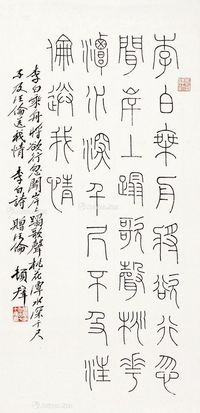 李白乘舟將欲行忽
聞岸上蹋歌聲桃花
潭水深千尺不及汪
倫送我情
李白乘舟將欲行忽聞岸上蹋歌聲桃花潭水深千尺
不及汪倫送我情 李白詩贈汪倫